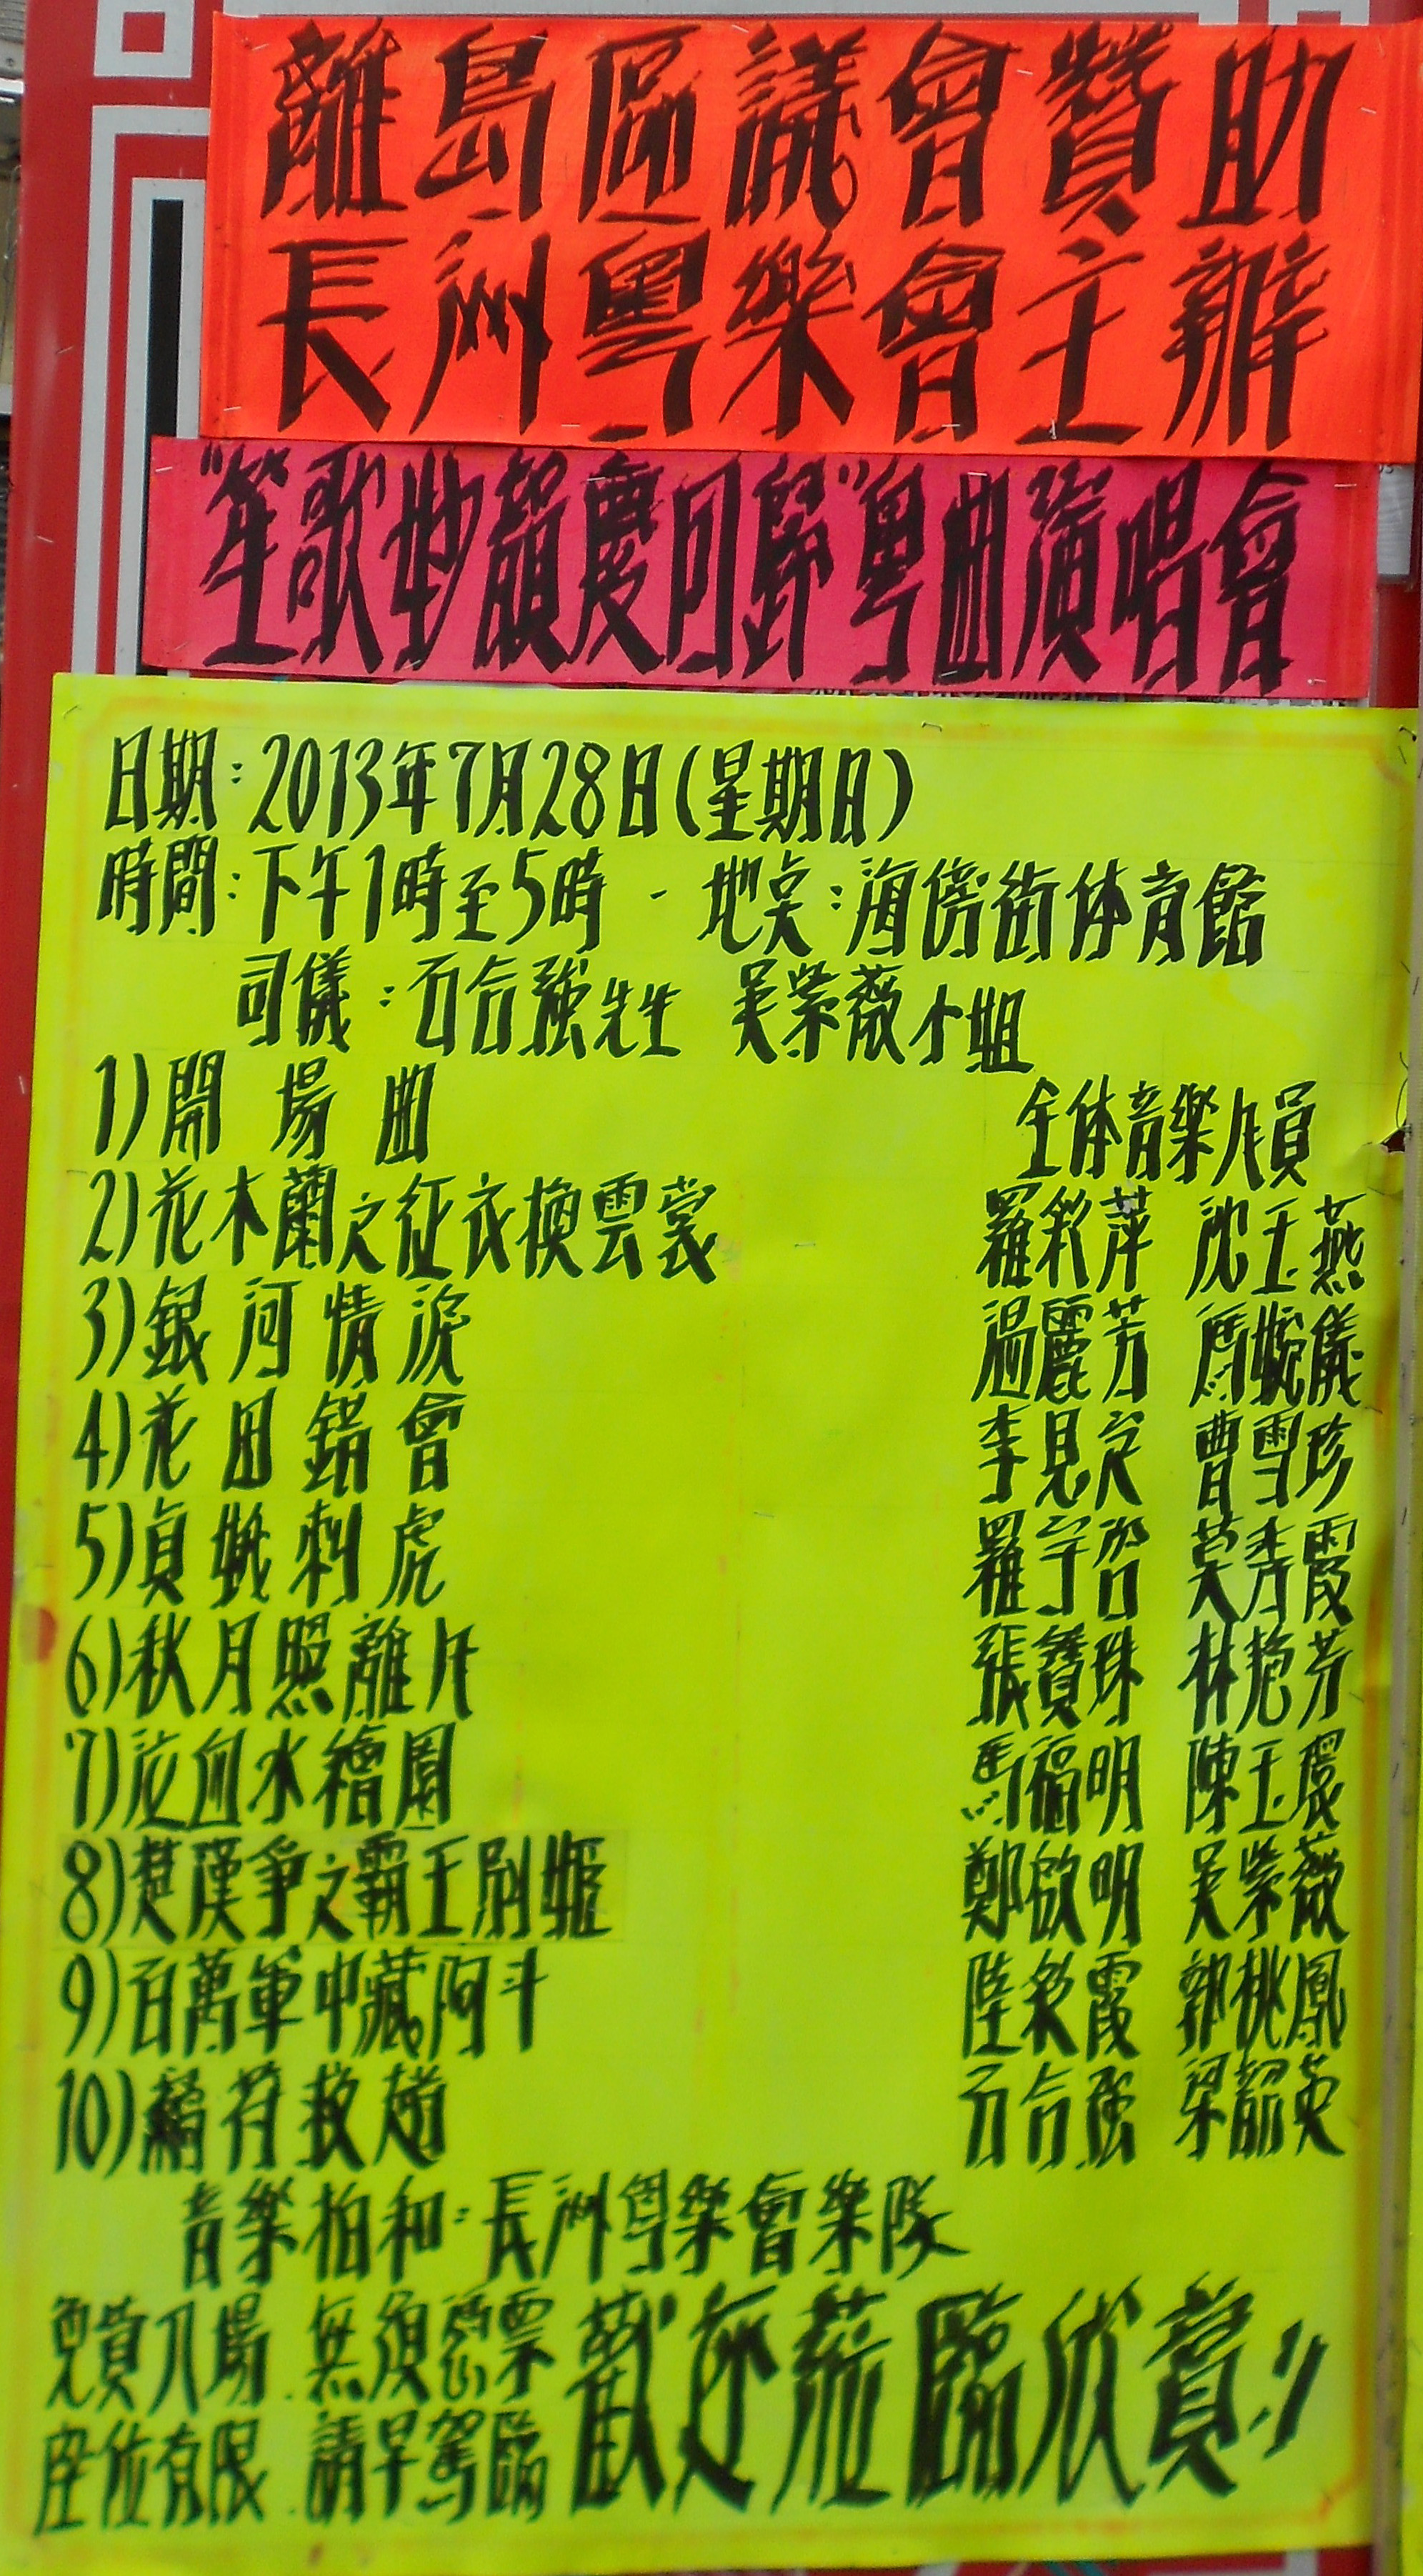 離島區議會贊助
長洲粵樂會主辦
"笙歌妙韻慶回歸"粵曲演唱會
日期:2013年7月28日(星期日)
時間:下午1時至5時 - 地点:海傍街体育館
司儀:石合強先生 吳紫薇小姐
1)開場曲 全体音樂人員
2)花木蘭之征衣換雲裳 羅彩萍 沈玉燕
3)銀河情淚 湯麗芳 馮婉儀
4)花田錯會 李見定 曹雪珍
5)貞娥刺虎 羅宇智 莫秀霞
6)秋月照離人 張寶珠 林艷芳
7)泣血水繪園 馬福明 陳玉環
8)楚漢爭之霸王別姬 鄭啟明 吳紫薇
9)百萬軍中藏阿斗 陸彩霞 鄧桃鳳
10)竊符救趙 石合強 梁韶英
音樂拍和:長洲粵樂會樂隊
免費入場.無須憑票
座位有限.請早駕臨
歡迎蒞臨欣賞!!